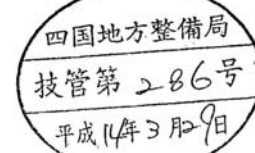 四国地方整備局
技管第 286号
平成14年3月29日